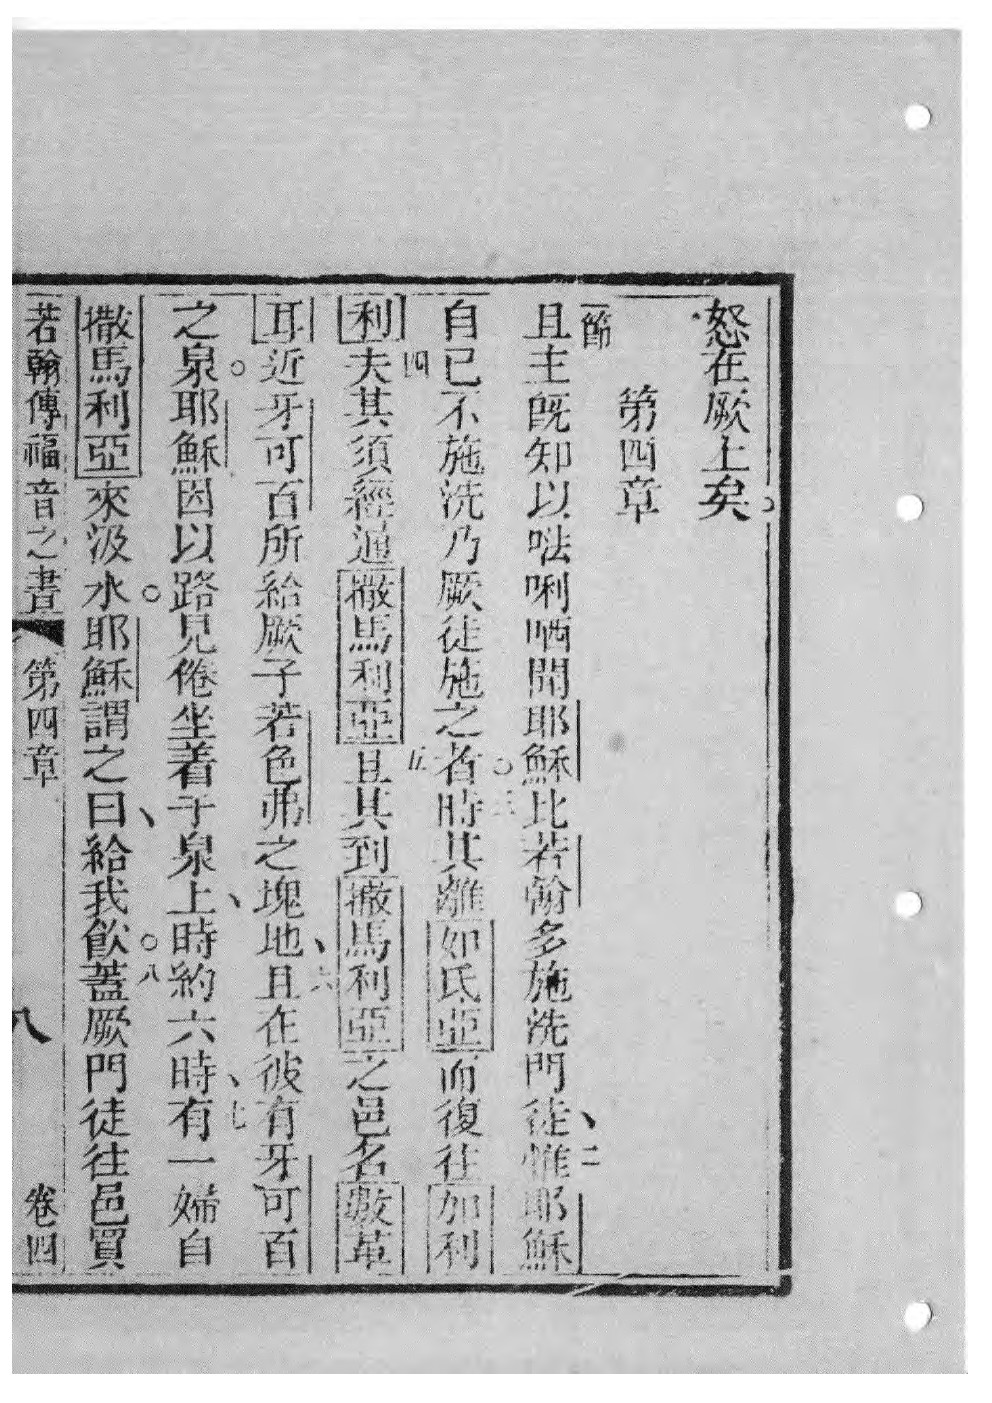 怒在厥上矣。
第四章
一節且主既知以𠵽唎哂聞耶穌比若翰多施洗門徒、二惟耶穌
自己不施洗乃厥徒施之者。三時其離如氏亞而復往加利
利四夫其須經過撒馬利亞五且其到撒馬利亞之邑名數革
耳近牙可百所給厥子若色弗之塊地、六且在彼有牙可百
之泉。耶穌因以路見倦坐着于泉上、時約六時、七有一婦自
撒馬利亞來汲水。耶穌謂之曰、給我飲。八蓋厥門徒往邑買
若翰傳福音之書 第四章 八 卷四